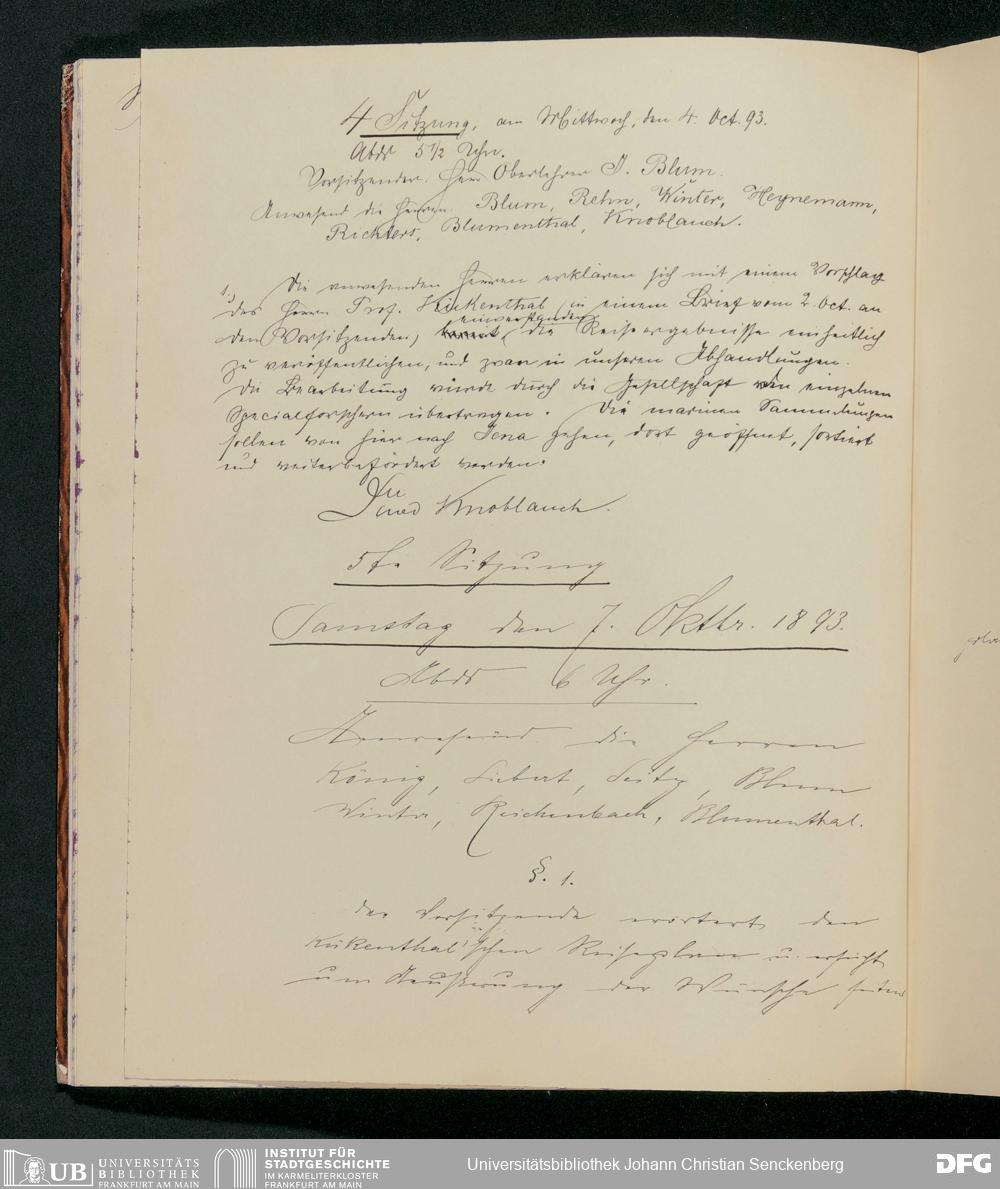 4 Sitzung, am Mittwoch, den 4. Oct. 93.
Abds 5 1/2 Uhr.
Vorsitzender: Herr Oberlehrer J. Blum.
Anwesend die Herren: Blum, Rehn, Winter, Heynemann,
Richters, Blumenthal, Knoblauch.
1.) Die anwesenden Herren erklären sich mit einem Vorschlag
des Herrn Prof. Kükenthal (in einem Brief vom 2. Oct. an
den Vorsitzenden) einverstanden, die Reiseergebnisse einheitlich
zu veröffentlichen, und zwar in unseren Abhandlungen.
Die Bearbeitung würde durch die Gesellschaft den einzelnen
Specialforschern übertragen. Die marinen Sammlungen
sollen von hier nach Jena gehen, dort geöffnet, sortiert
und weiterbefördert werden.
Knoblauch.
5te Sitzung
Samstag den 7. Oktbr. 1893.
Abds 6 Uhr.
Anwesend die Herren
König, Siebert, Seitz, Blum
Winter, Reichenbach, Blumenthal.
§. 1.
Der Vorsitzende erörtert den
Kükenthal'schen Reiseplan u. ersucht
um Aeußerung der Wünsche seitens
UB UNIVERSITÄTS
BIBLIOTHEK
FRANKFURT AM MAIN
INSTITUT FÜR
STADTGESCHICHTE
IM KARMELITERKLOSTER
FRANKFURT AM MAIN
Universitätsbibliothek Johann Christian Senckenberg
DFG